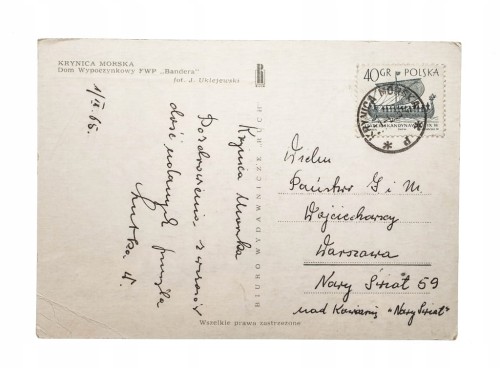 KRYNICA MORSKA
Dom Wypoczynkowy FWP „Bandera”
fot. J. Uklejewski
1/IX 65.
Krynica Morska
Pozdrowienia z wczasów
dość udanych przesyła
BIURO WYDAWNICZE „RUCH”
40 GR POLSKA
KRYNICA MORSKA
Wielm.
Państwo J i M.
Wojciechowscy
Warszawa
Nowy Świat 59
nad Kawiarnią "Nowy Świat"
Wszelkie prawa zastrzeżone